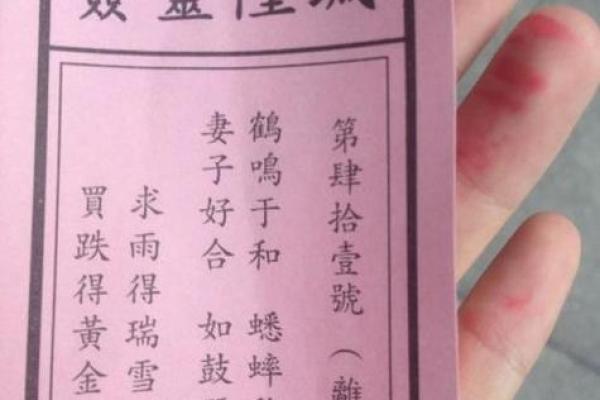 城隍靈籤
第肆拾壹號（離
鶴鳴于和 蟋蟀
妻子好合 如鼓
求雨得瑞雪
買跌得黃金